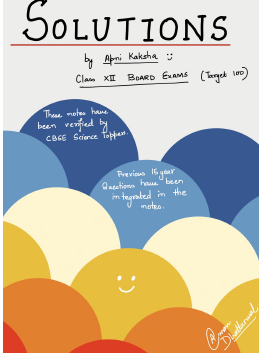 SOLUTIONS
by Apni Kaksha
Class XII BOARD EXAMS (Target 100)
These notes have
been verified by
CBSE Science Toppers.
Previous 15 year
Questions have been
integrated in the
notes.
Dhattarwal